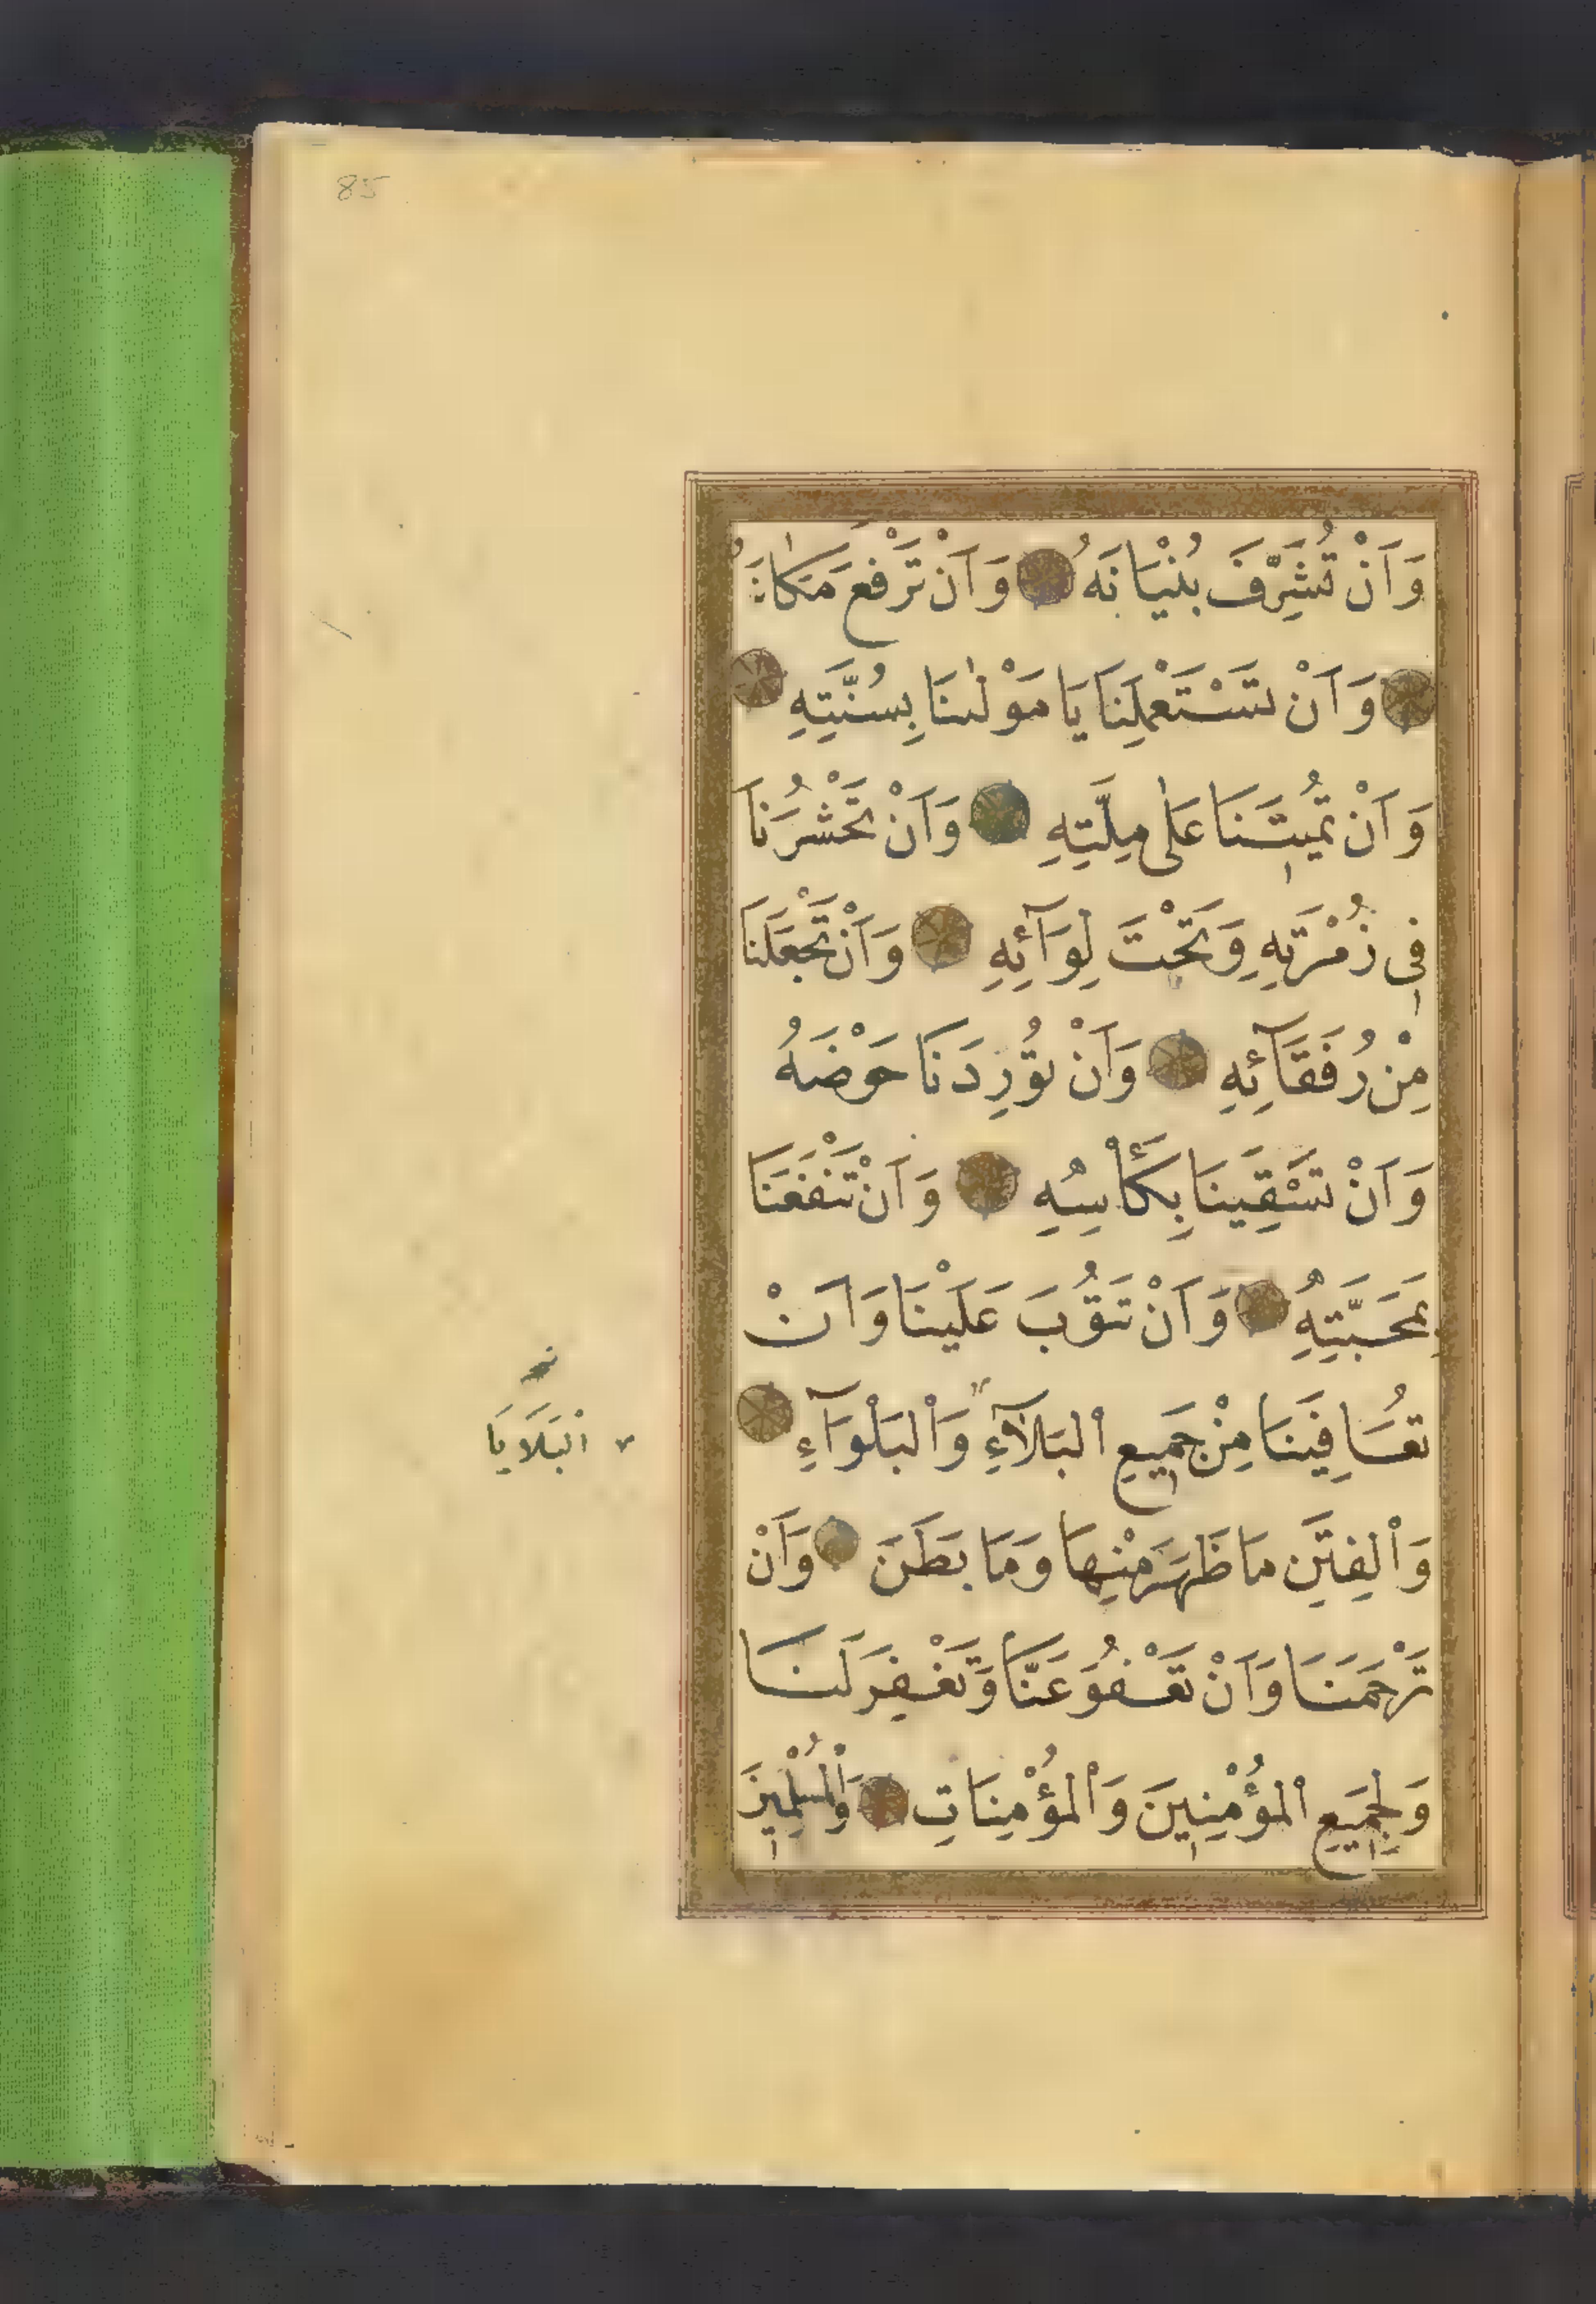 85
وَاَنْ تُشَرِّفَ بُنْيَانَهُ وَاَنْ تَرْفَعَ مَكَانَهُ
وَاَنْ تَسْتَعْمِلَنَا يَا مَوْلٰىنَا بِسُنَّتِهِ
وَاَنْ تُمِيتَنَا عَلٰى مِلَّتِهِ وَاَنْ تَحْشُرَنَا
فِى زُمْرَتِهِ وَتَحْتَ لِوَآئِهِ وَاَنْ تَجْعَلَنَا
مِنْ رُفَقَآئِهِ وَاَنْ تُوْرِدَنَا حَوْضَهُ
وَاَنْ تَسْقِيَنَا بِكَأْسِهِ وَاَنْ تَنْفَعَنَا
بِمَحَبَّتِهِ وَاَنْ تَتُوبَ عَلَيْنَا وَاَنْ
تُعَافِيَنَا مِنْ جَمِيعِ الْبَلَآءِ وَالْبَلْوَآءِ
الْبَلَايَا
وَالْفِتَنِ مَا ظَهَرَ مِنْهَا وَمَا بَطَنَ وَاَنْ
تَرْحَمَنَا وَاَنْ تَعْفُوَ عَنَّا وَتَغْفِرَ لَنَا
وَلِجَمِيعِ الْمُؤْمِنِينَ وَالْمُؤْمِنَاتِ وَالْمُسْلِمِينَ